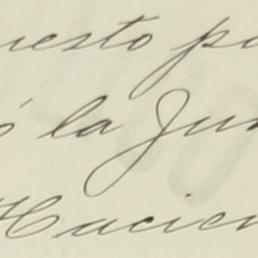 uesto po
ó la Jun
Hacien